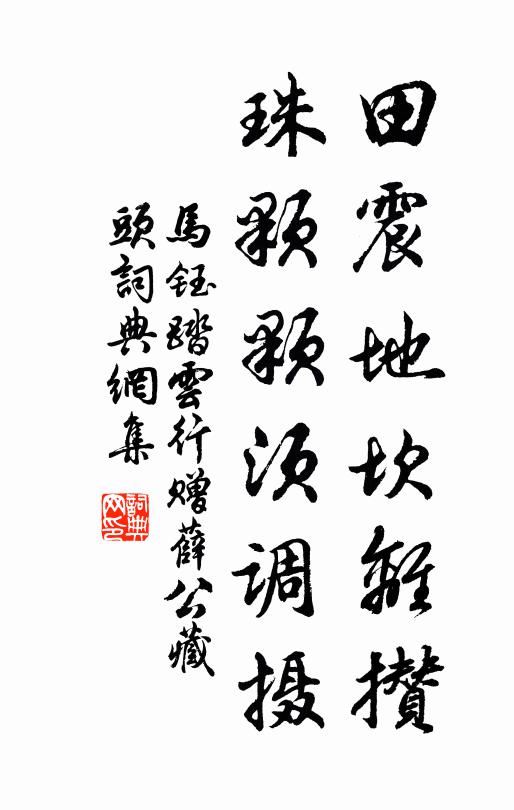 田震地坎離攢
珠顆顆须调摄
馬鈺踏雲行赠薛公藏
頭詞典網集
詞典網印